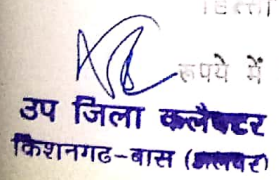 रूपये में
उप जिला कलैक्टर
किशनगढ-बास (अलवर)